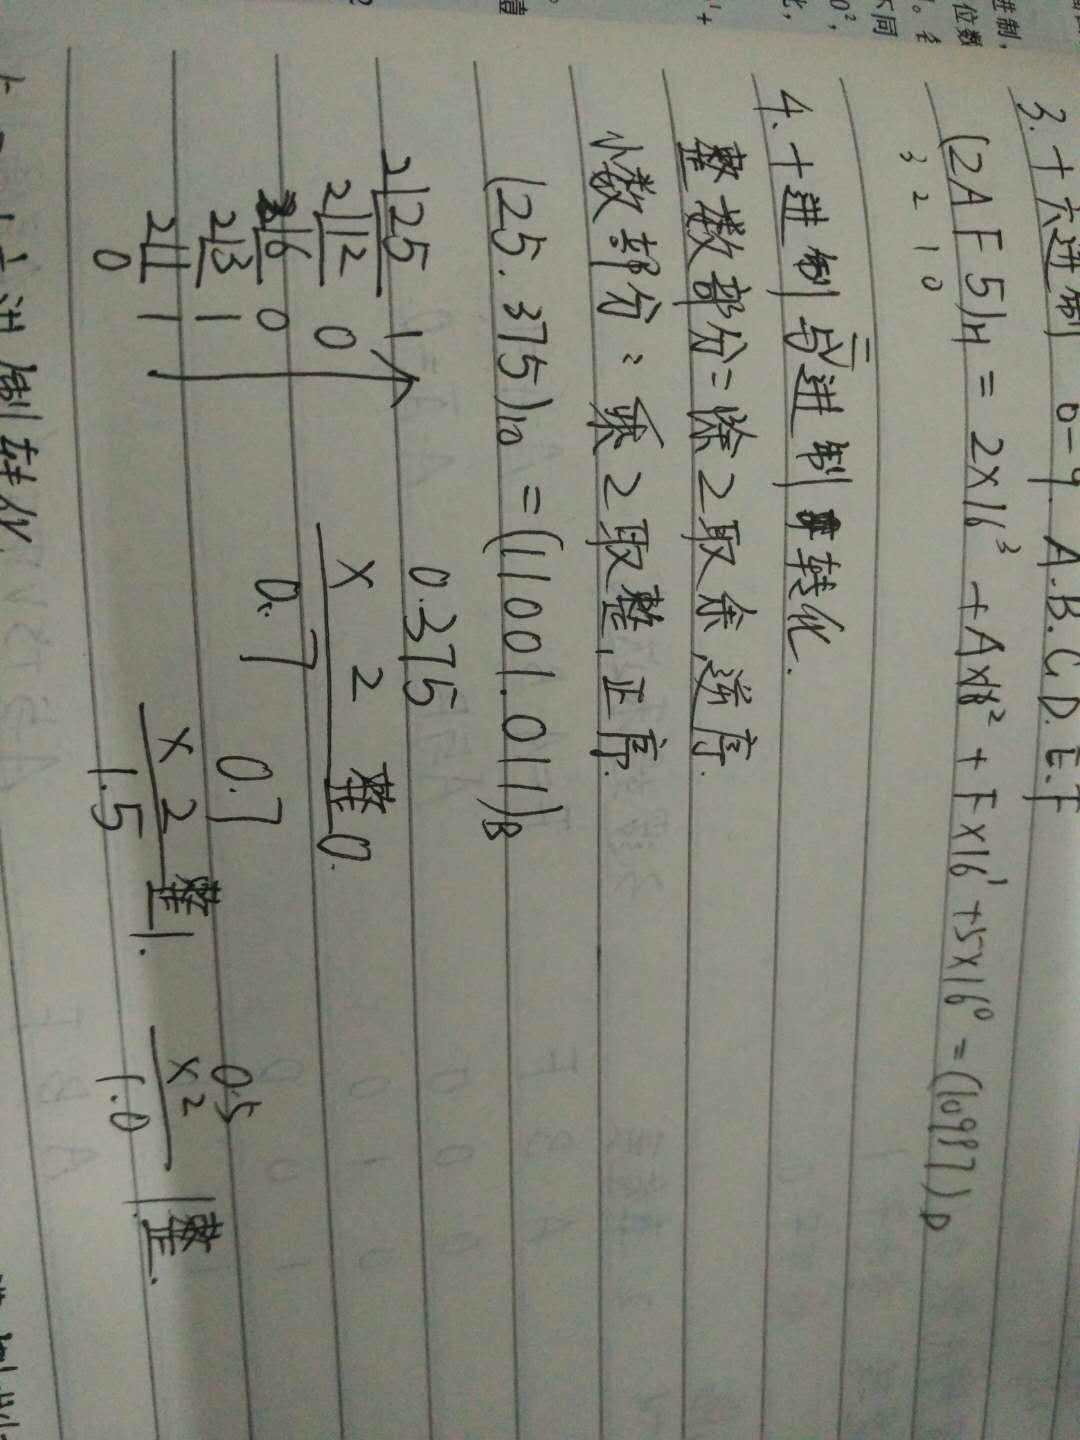 3.十六进制 0-9. A.B.C.D.E.F
(2AF5)H = 2×16³ +A×16² + F×16¹ +5×16⁰ = (10997)D
3 2 1 0
4.十进制与二进制转化.
整数部分:除2取余,逆序.
小数部分:乘2取整,正序.
(25.375)10 = (11001.011)B
2 25 1
2 12 0
2 6 0
2 3 1
2 1 1
0
0.375
× 2 整0.
0.7
0.7
× 2 整1.
1.5
0.5
×2 1整.
1.0
进制转化.